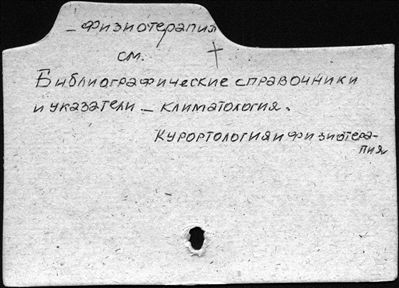 – физиотерапия
см. †
Библиографические справочники
и указатели – климатология.
Курортология и физиотера-
пия